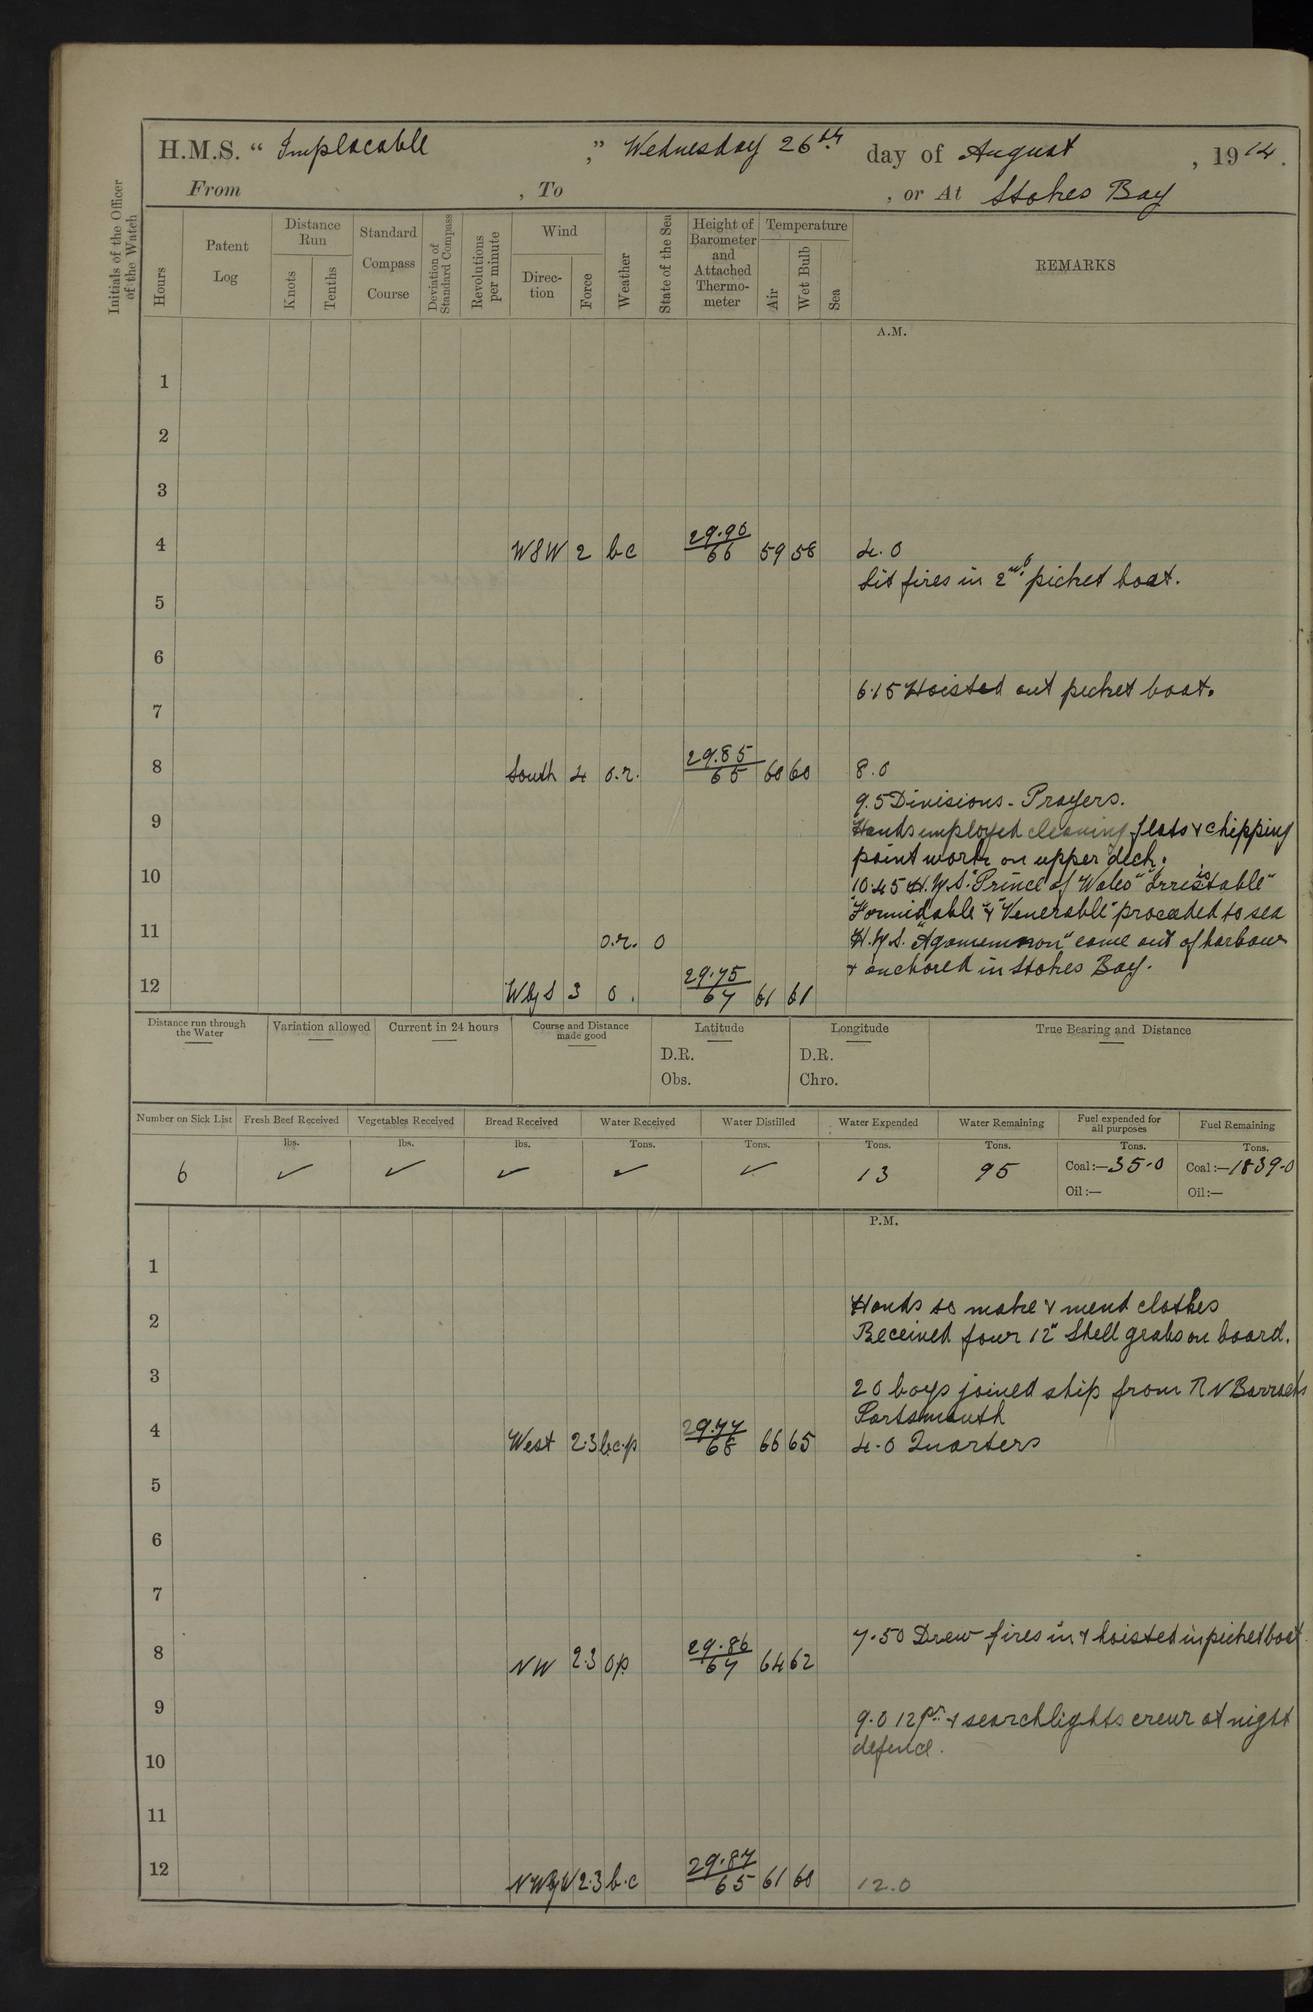 H.M.S. "Implacable," Wednesday 26th. day of August, 1914.
From , To , or At Stokes Bay
Initials of the Officer of the Watch
Hours
Patent Log
Distance Run
Knots
Tenths
Standard Compass Course
Deviation of Standard Compass
Revolutions per minute
Wind
Direc-tion
Force
Weather
State of the Sea
Height of Barometer and Attached Thermo-meter
Temperature
Air
Wet Bulb
Sea
REMARKS
A.M.
1
2
3
4 WSW 2 bc 29.90/66 59 58 4.0
Lit fires in 2nd. picket boat.
5
6
6.15 Hoisted out picket boat.
7
8 South 4 o.r. 29.85/65 60 60 8.0
9.5 Divisions - Prayers.
9
Hands employed cleaning flats & chipping
paint work on upper deck.
10
10.45 H.M.S. "Prince of Wales" "Irresistable"
"Formidable" & "Venerable" proceeded to sea
11 o.r. o
H.M.S. "Agamemnon" came out of harbour
& anchored in Stokes Bay.
12 W by S 3 o. 29.75/67 61 61
Distance run through the Water
Variation allowed
Current in 24 hours
Course and Distance made good
Latitude
D.R.
Obs.
Longitude
D.R.
Chro.
True Bearing and Distance
Number on Sick List
Fresh Beef Received
Vegetables Received
Bread Received
Water Received
Water Distilled
Water Expended
Water Remaining
Fuel expended for all purposes
Fuel Remaining
lbs. lbs. lbs. Tons. Tons. Tons. Tons. Tons. Tons.
6 ✓ ✓ ✓ ✓ ✓ 13 95 Coal:—35.0 Coal:—1839.0
Oil:— Oil:—
P.M.
1
Hands to make & mend clothes
2
Received four 12" Shell grabs on board.
3
20 boys joined ship from RN Barracks
Portsmouth
4 West 2.3 bc.p 29.77/68 66 65 4.0 Quarters
5
6
7
7.50 Drew fires in & hoisted in picket boat
8 NW 2.3 op. 29.86/67 64 62
9
9.0 12pr. & searchlights crew at night
defence.
10
11
12 NW by W 2.3 b.c 29.87/65 61 60 12.0